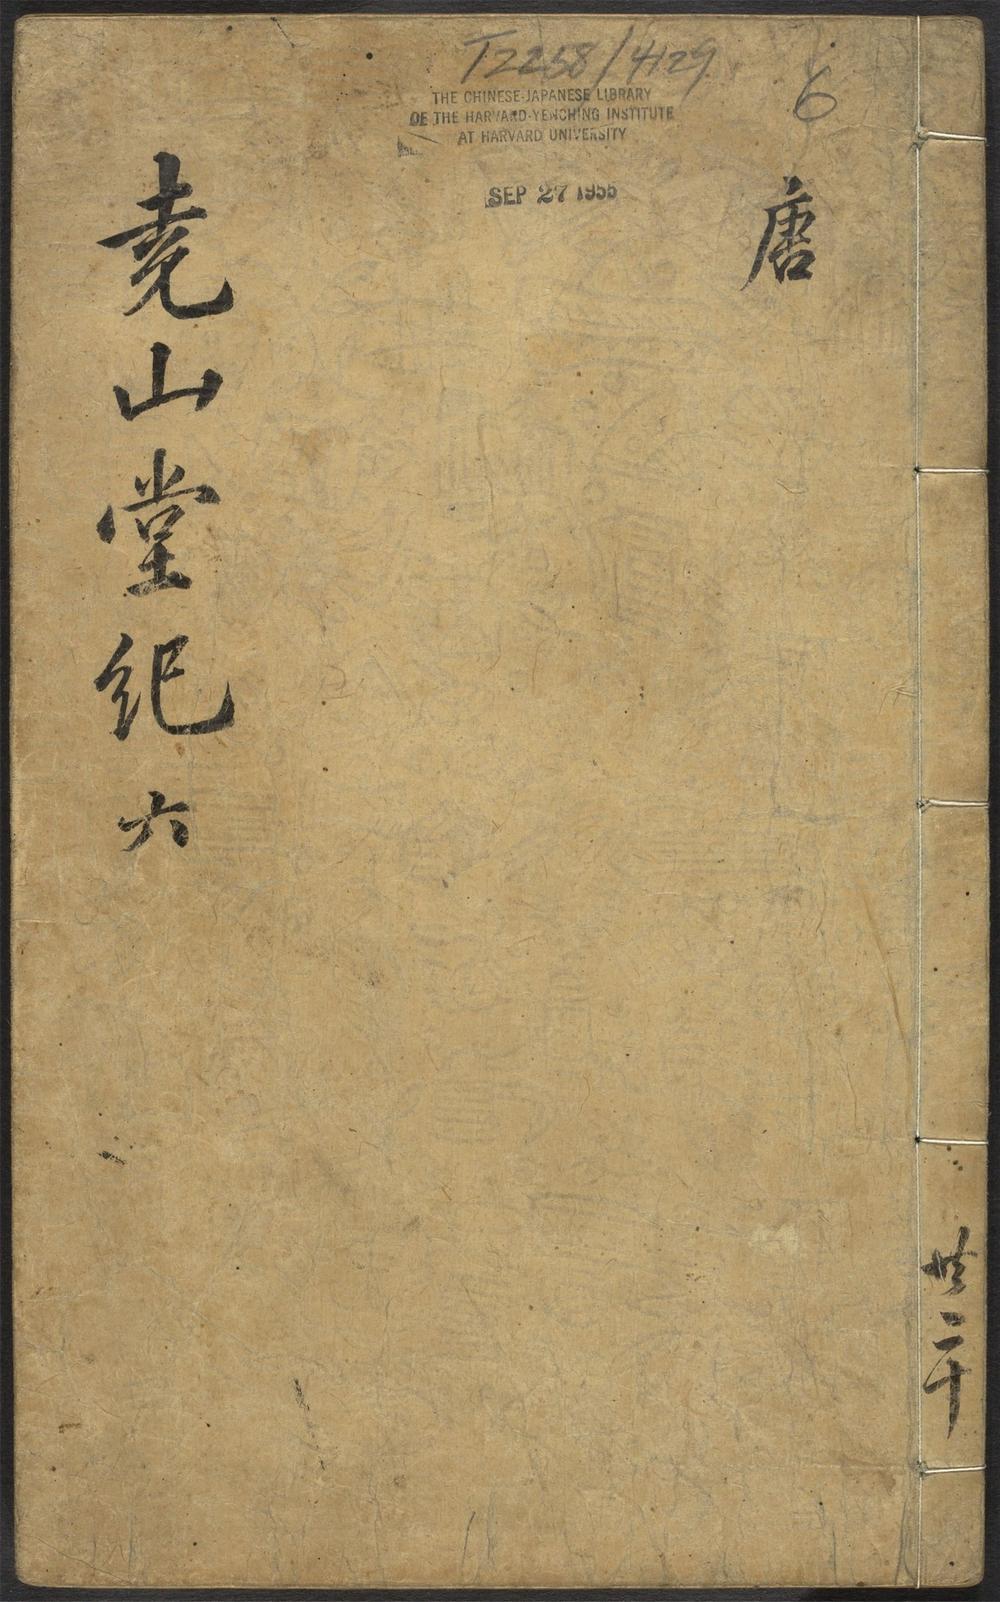 T2258/4129
6
THE CHINESE-JAPANESE LIBRARY
OF THE HARVARD-YENCHING INSTITUTE
AT HARVARD UNIVERSITY
SEP 27 1955
唐
堯山堂紀 六
共二十